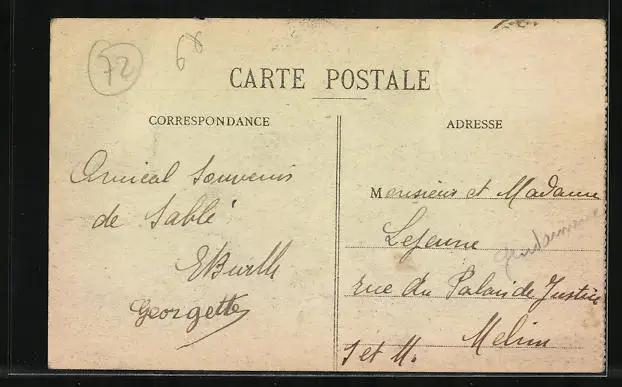 72
CARTE POSTALE
CORRESPONDANCE
ADRESSE
Amical souvenir
de Sablé
Georgette
Monsieur et Madame
Lejeune
gendarmerie
rue du Palais de Justice
Melun
S et M.